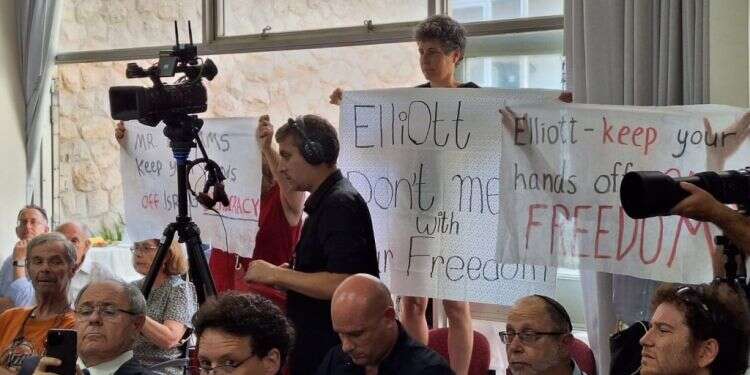 MR.
Keep your hands
OFF
EllioTT
Don't me
with
Freedom
Elliott-keep your
hands off
FREEDOM